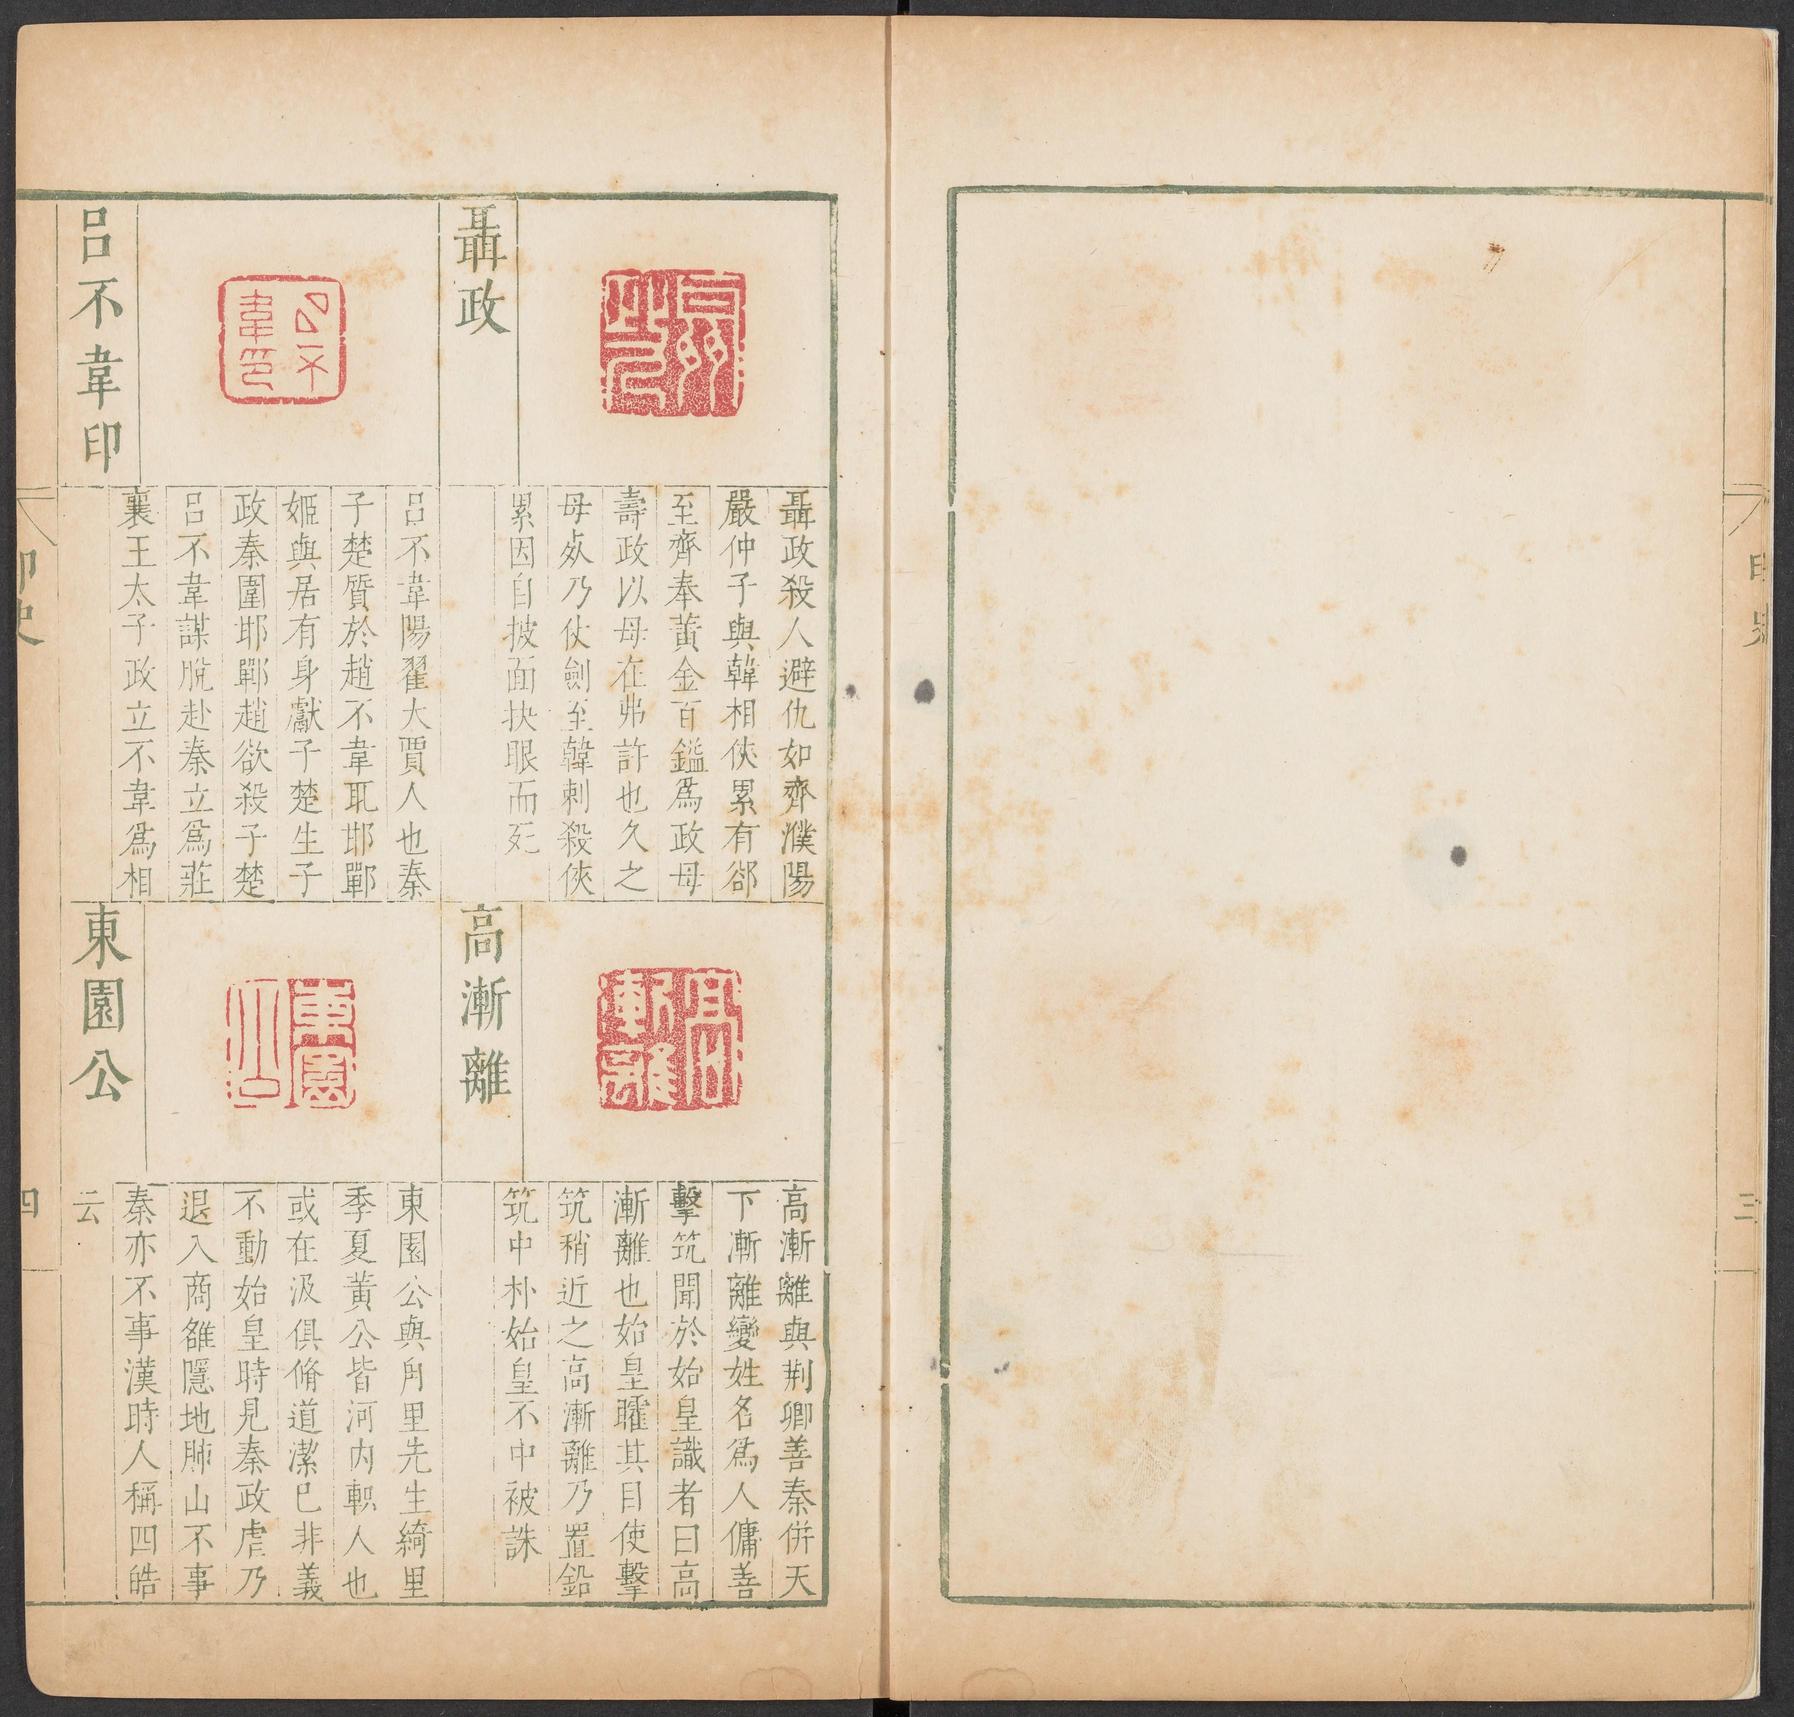 印史
三
聶政
聶政殺人避仇如齊濮陽
嚴仲子與韓相俠累有郤
至齊奉黃金百鎰爲政母
壽政以母在弗許也久之
母歿乃仗劍至韓刺殺俠
累因自披面抉眼而死
呂不韋印
呂不韋陽翟大賈人也秦
子楚質於趙不韋取邯鄲
姬與居有身獻子楚生子
政秦圍邯鄲趙欲殺子楚
呂不韋謀脫赴秦立爲莊
襄王太子政立不韋爲相
高漸離
高漸離與荆卿善秦併天
下漸離變姓名爲人傭善
擊筑聞於始皇識者曰高
漸離也始皇矐其目使擊
筑稍近之高漸離乃置鉛
筑中朴始皇不中被誅
東園公
東園公與角里先生綺里
季夏黃公皆河內軹人也
或在汲俱脩道潔己非義
不動始皇時見秦政虐乃
退入商雒隱地肺山不事
秦亦不事漢時人稱四皓
云
印史
四